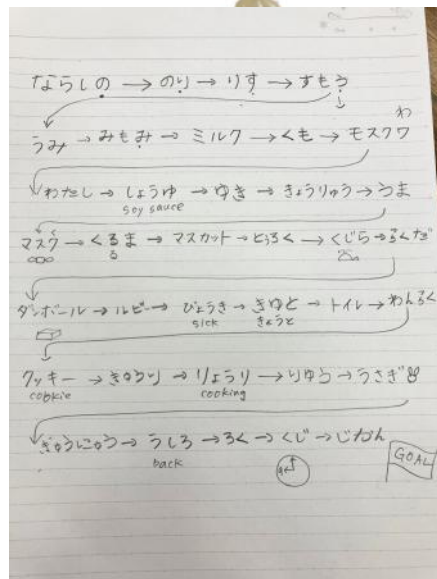 ならしの → のり → りす → すもう
わ
うみ → みもみ → ミルク → くも → モスクワ
わたし → しょうゆ → ゆき → きょうりゅう → うま
soy sauce
マスク → くるま → マスカット → とうろく → くじら → らくだ
る
ダンボール → ルビー → びょうき → きゆと → トイレ →
sick きょうと
クッキー → きゅうり → りょうり → りゆう → うさぎ
cookie cooking
ぎゅうにゅう → うしろ → ろく → くじ → じかん
back
9
GOAL